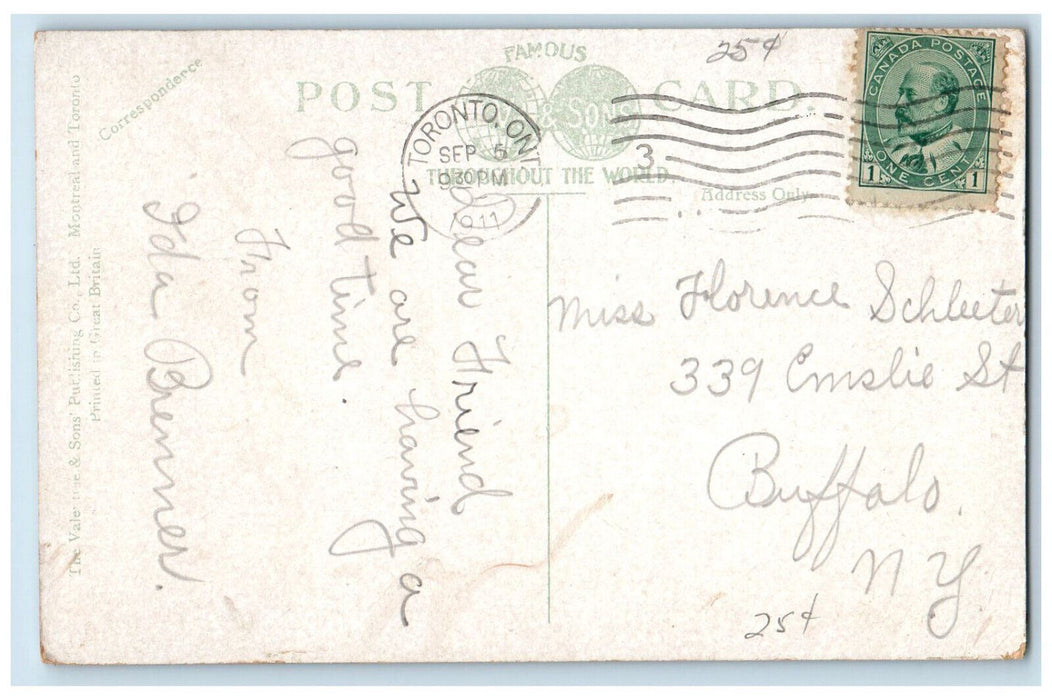 FAMOUS
POST CARD.
& SONS
THROUGHOUT THE WORLD.
Address Only
Correspondence
The Valentine & Sons' Publishing Co., Ltd. Montreal and Toronto
Printed in Great Britain
25¢
TORONTO, ONT
SEP 5
930 PM
1911
3
CANADA POSTAGE
1 ONE CENT 1
Dear Friend
We are having a
good time.
From
Ida Brenner.
Miss Florence Schleeter
339 Emslie St
Buffalo.
N Y.
25¢